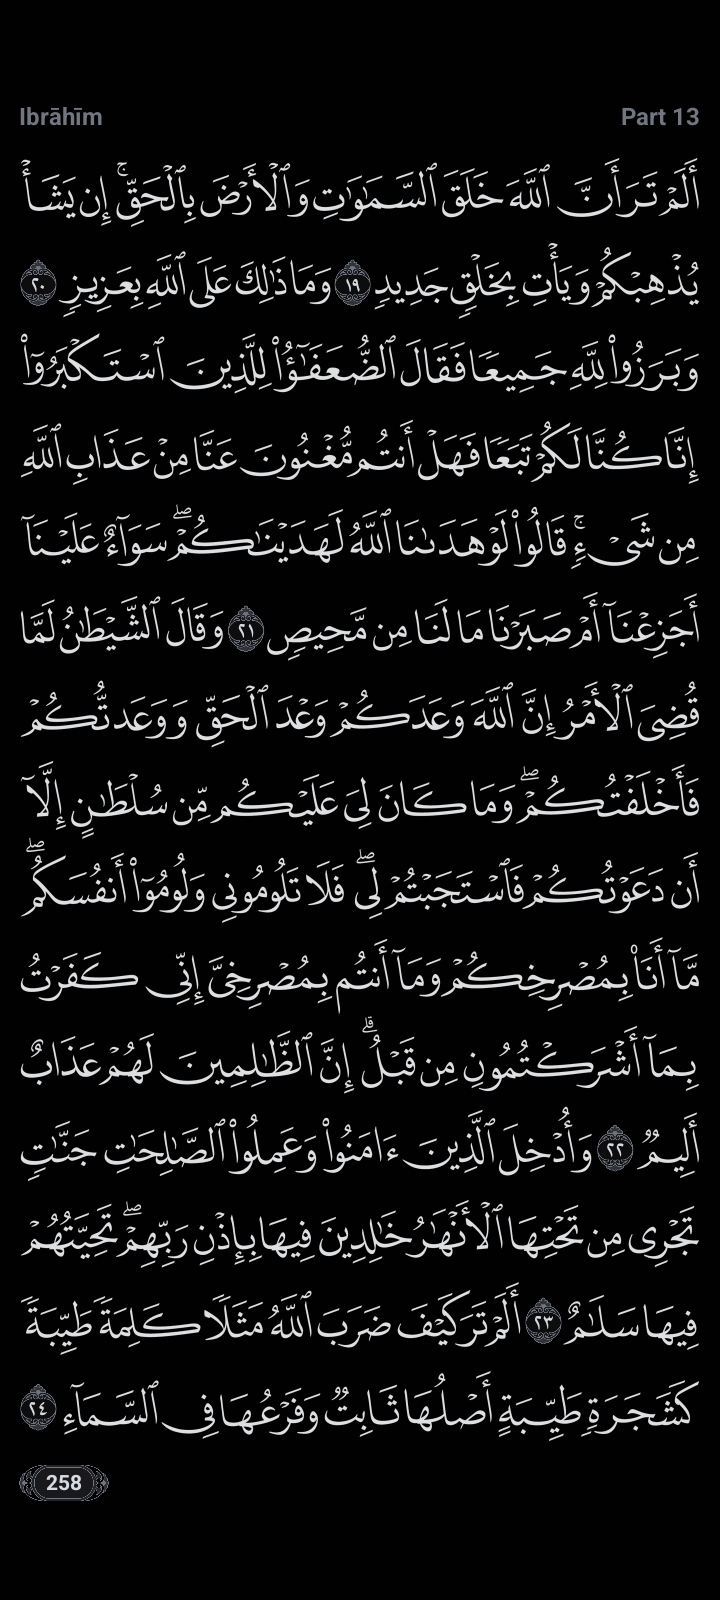 Ibrāhīm Part 13
أَلَمۡ تَرَ أَنَّ ٱللَّهَ خَلَقَ ٱلسَّمَٰوَٰتِ وَٱلۡأَرۡضَ بِٱلۡحَقِّۚ إِن يَشَأۡ
يُذۡهِبۡكُمۡ وَيَأۡتِ بِخَلۡقٖ جَدِيدٖ ١٩ وَمَا ذَٰلِكَ عَلَى ٱللَّهِ بِعَزِيزٖ ٢٠
وَبَرَزُواْ لِلَّهِ جَمِيعٗا فَقَالَ ٱلضُّعَفَٰٓؤُاْ لِلَّذِينَ ٱسۡتَكۡبَرُوٓاْ
إِنَّا كُنَّا لَكُمۡ تَبَعٗا فَهَلۡ أَنتُم مُّغۡنُونَ عَنَّا مِنۡ عَذَابِ ٱللَّهِ
مِن شَيۡءٖۚ قَالُواْ لَوۡ هَدَىٰنَا ٱللَّهُ لَهَدَيۡنَٰكُمۡۖ سَوَآءٌ عَلَيۡنَآ
أَجَزِعۡنَآ أَمۡ صَبَرۡنَا مَا لَنَا مِن مَّحِيصٖ ٢١ وَقَالَ ٱلشَّيۡطَٰنُ لَمَّا
قُضِيَ ٱلۡأَمۡرُ إِنَّ ٱللَّهَ وَعَدَكُمۡ وَعۡدَ ٱلۡحَقِّ وَوَعَدتُّكُمۡ
فَأَخۡلَفۡتُكُمۡۖ وَمَا كَانَ لِيَ عَلَيۡكُم مِّن سُلۡطَٰنٍ إِلَّآ
أَن دَعَوۡتُكُمۡ فَٱسۡتَجَبۡتُمۡ لِيۖ فَلَا تَلُومُونِي وَلُومُوٓاْ أَنفُسَكُمۖ
مَّآ أَنَا۠ بِمُصۡرِخِكُمۡ وَمَآ أَنتُم بِمُصۡرِخِيَّ إِنِّي كَفَرۡتُ
بِمَآ أَشۡرَكۡتُمُونِ مِن قَبۡلُۗ إِنَّ ٱلظَّٰلِمِينَ لَهُمۡ عَذَابٌ
أَلِيمٞ ٢٢ وَأُدۡخِلَ ٱلَّذِينَ ءَامَنُواْ وَعَمِلُواْ ٱلصَّٰلِحَٰتِ جَنَّٰتٖ
تَجۡرِي مِن تَحۡتِهَا ٱلۡأَنۡهَٰرُ خَٰلِدِينَ فِيهَا بِإِذۡنِ رَبِّهِمۡۖ تَحِيَّتُهُمۡ
فِيهَا سَلَٰمٌ ٢٣ أَلَمۡ تَرَ كَيۡفَ ضَرَبَ ٱللَّهُ مَثَلٗا كَلِمَةٗ طَيِّبَةٗ
كَشَجَرَةٖ طَيِّبَةٍ أَصۡلُهَا ثَابِتٞ وَفَرۡعُهَا فِي ٱلسَّمَآءِ ٢٤
258